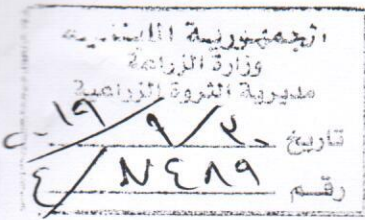 الجمهورية اللبنانية
وزارة الزراعة
مديرية الثروة الزراعية
تاريخ ٢٠/٩/٢٠١٩
رقم ٤/٧٤٨٩